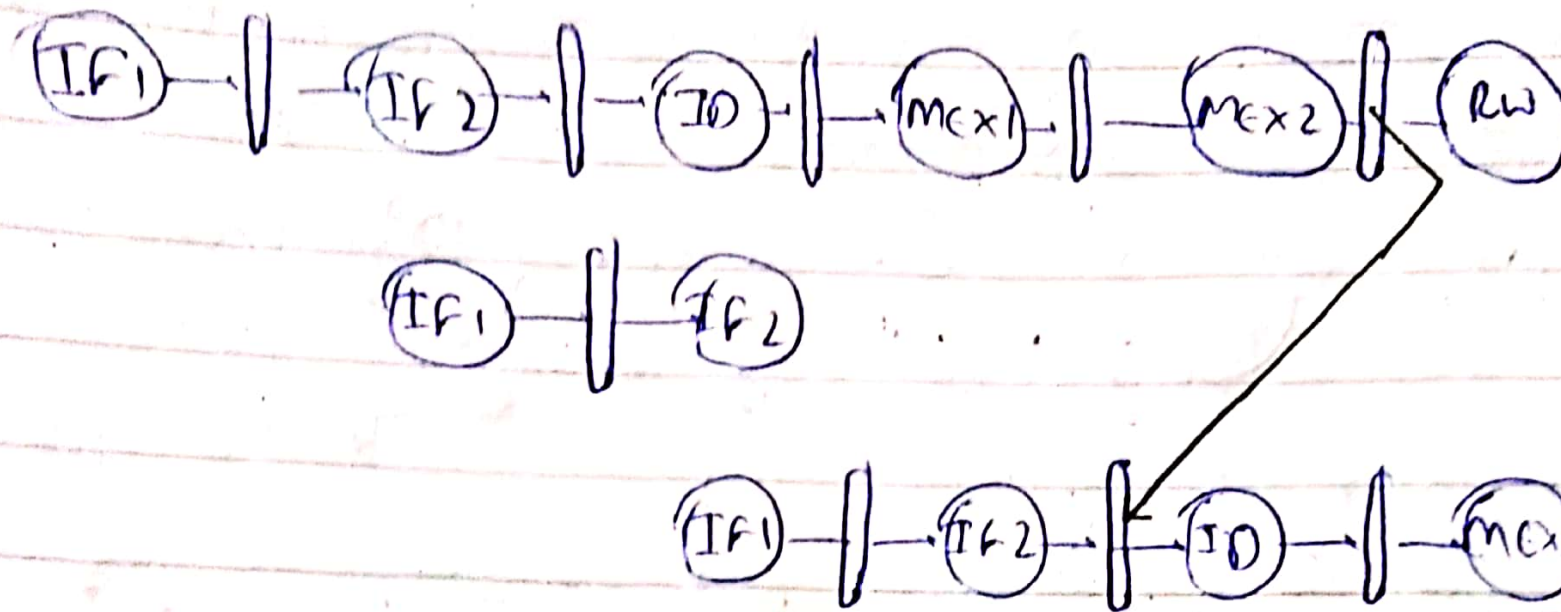 IF1 IF2 ID MEX1 MEX2 RW
IF1 IF2
IF1 IF2 ID MEX